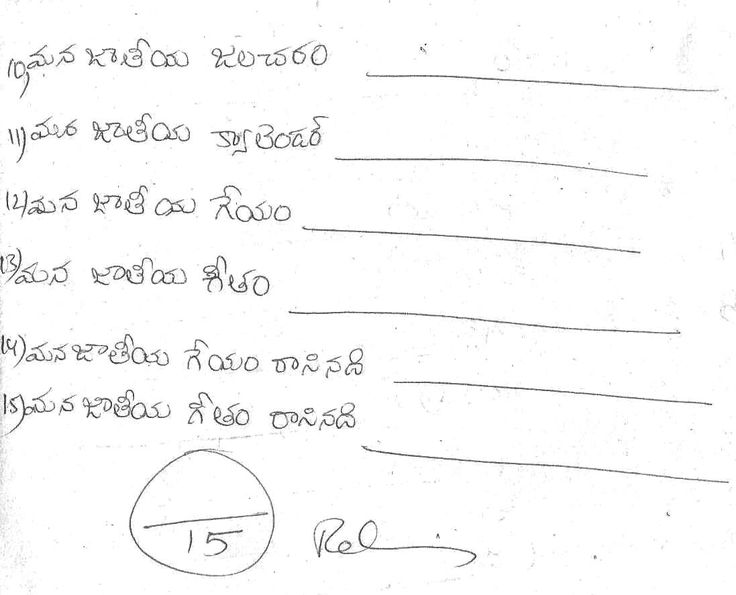 10) మన జాతీయ జలచరం
11) మన జాతీయ క్యాలెండర్
12) మన జాతీయ గేయం
13) మన జాతీయ గీతం
14) మన జాతీయ గేయం రాసినది
15) మన జాతీయ గీతం రాసినది
15